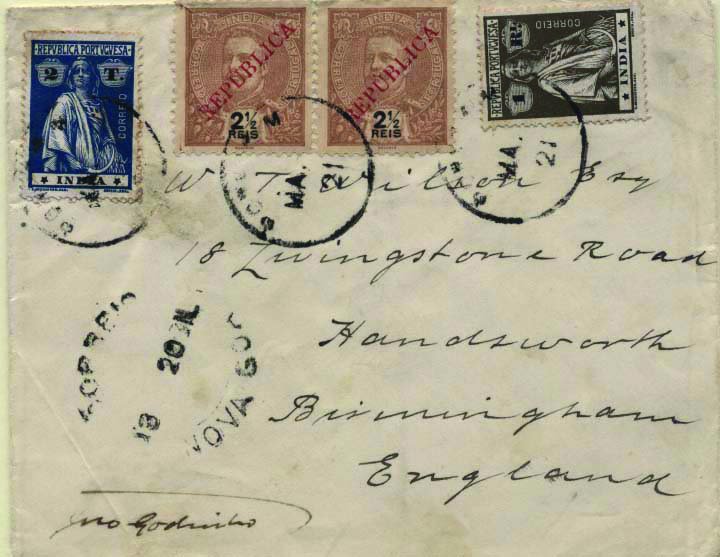 REPUBLICA PORTUGUESA
2 T.
CORREIO
INDIA
INDIA
REPUBLICA
2½
REIS
INDIA
REPUBLICA
2½
REIS
REPUBLICA PORTUGUESA
1 Rl.
CORREIO
INDIA
MA.
21
MA.
21
W. T. Wilson Esq
18 Livingstone Road
Handsworth
Birmingham
England
CORREIO
18 20
NOVA GOA
Godinho